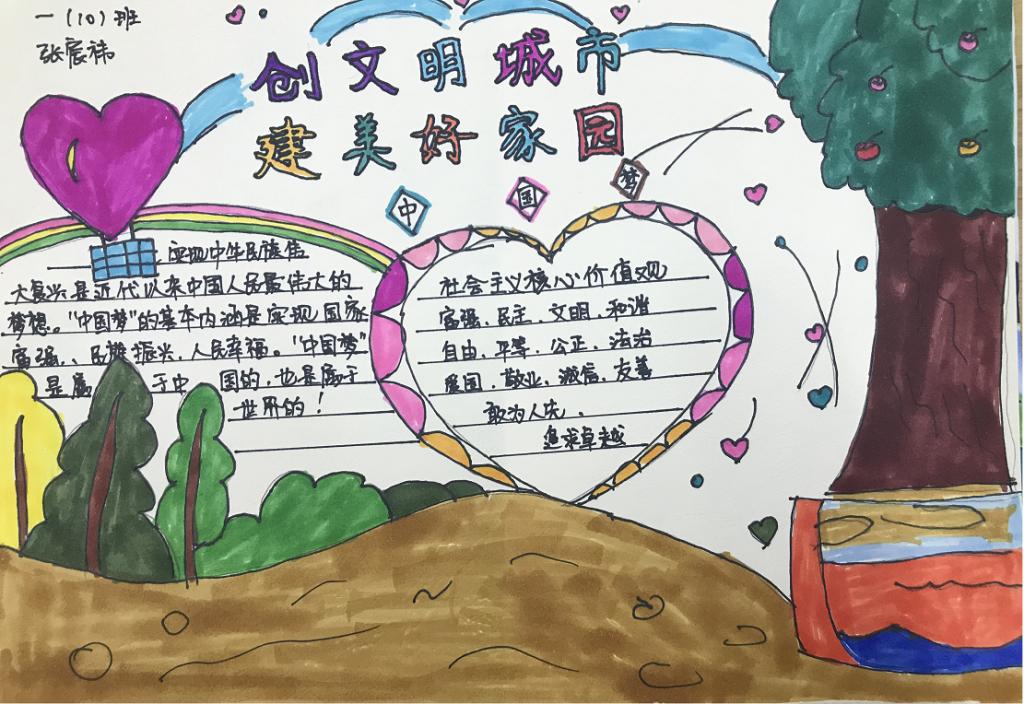 一(10)班
张宸祎
创文明城市
建美好家园
中国梦
实现中华民族伟
大复兴是近代以来中国人民最伟大的
梦想。"中国梦"的基本内涵是实现国家
富强、民族振兴、人民幸福。"中国梦"
是属于中国的,也是属于
世界的!
社会主义核心价值观
富强、民主、文明、和谐
自由、平等、公正、法治
爱国、敬业、诚信、友善
敢为人先、
追求卓越